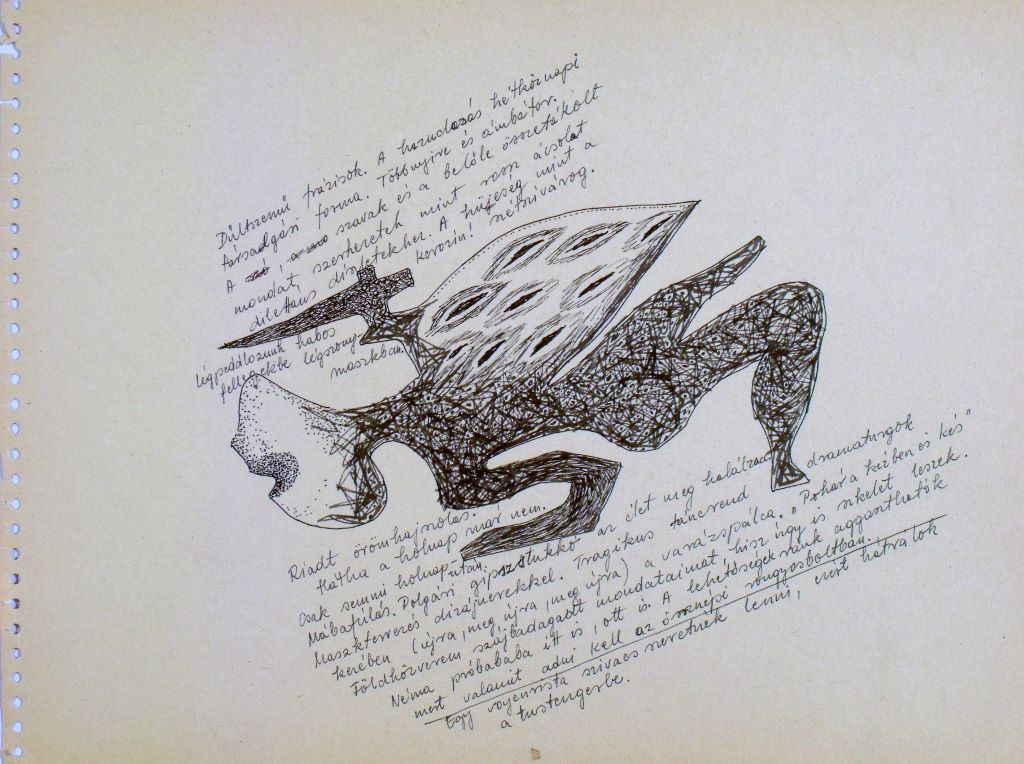 Dültszemű frázisok. A hazudozás hétköznapi
társadgási forma. Többnyire és ámbátor.
A szavak és a belőle összetákolt
mondat, szerkezetek mint rossz ácsolat
dilettáns díszletekhez. A hűjeség mint a
kerozin! szétszivárog.
Légpedálozunk habos
fellegekbe légszomj
maszkban.
Riadt örömhajszolás.
Hátha a holnap már nem.
Csak semmi holnap-után.
Mábafúlás. Dolgári gipszstukkó az élet meg halálzaj
Maszktervezés dizájnerekkel. Tragikus táncrend dramaturgok
kezében (újra, meg újra, meg újra) a varázspálca. "Pohár a kézben és kés"
Földhözverem szájbadagadt mondataimat hisz úgy is siketet leszek.
Néma próbababa itt is, ott is. A lehetőségeknek aggaszthatók
mert valamit adni kell az össznépi rongyosboltban.
Egy voyeurista szivacs szeretnék lenni, mert hátralok
a tustengerbe.